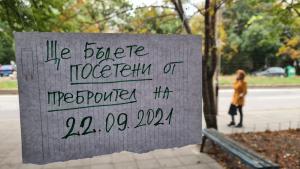 Ще бъдете
посетени от
преброител на
22.09.2021